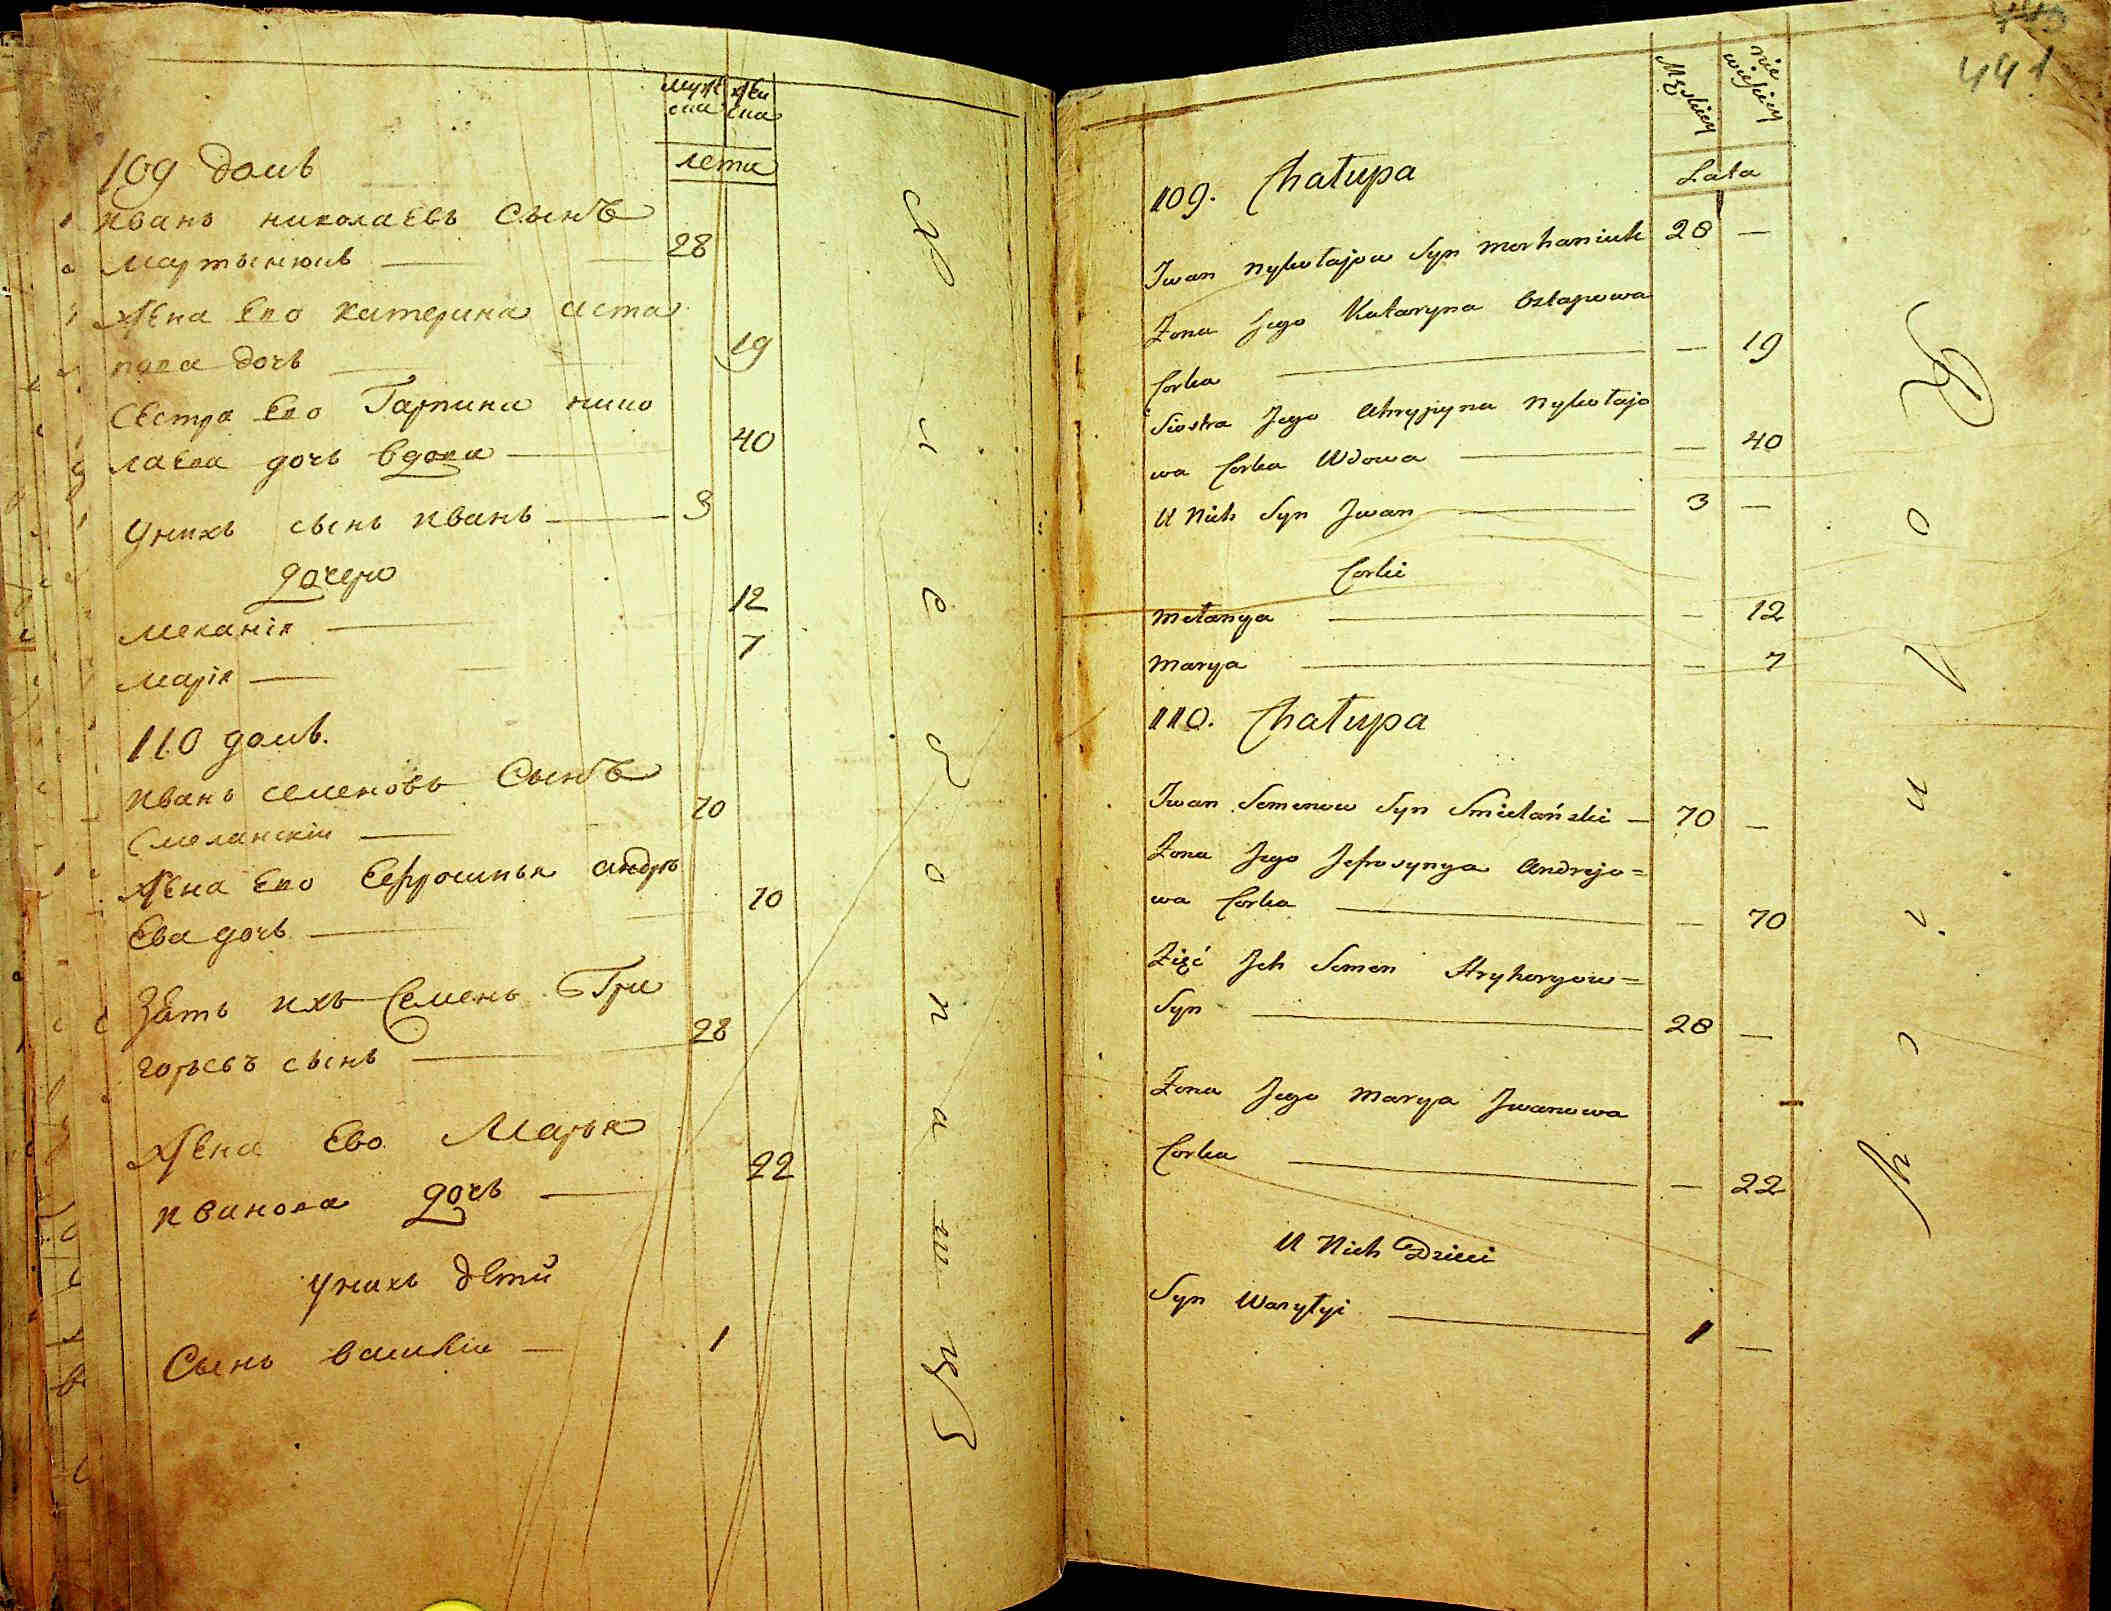 муж ска
жен ска
лета
109 домъ
Иванъ николаевъ Сынъ
мартынюкъ — 28
Жена Ево катерина аста
пова дочь — 19
Сестра Ево Гарпина нико
лаева дочь вдова — 40
Унихъ сынъ иванъ — 3
дочери
меланія — 12
марія — 7
110 домъ.
иванъ семеновъ Сынъ
Смеланскіи — 70
Жена Ево Ефросинья андре
Ева дочь — 70
Зять ихъ Семенъ Гри
горьевъ сынъ — 28
Жена Ево Марья
иванова дочь — 22
Унихъ дети
Сынъ василіи — 1
Хлебопашцы
441
Męskiey
niewieskiey
Lata
109. Chałupa
Iwan Nykołajow Syn Marhaniuk 28 —
Zona Jego Kataryna Ostapowa
Corka — — 19
Siostra Jego Ahrypyna Nykołajo
wa Corka Wdowa — — 40
U Nich Syn Jwan — 3 —
Corki
Mełanya — — 12
Marya — — 7
110. Chałupa
Jwan Semenow Syn Smielański — 70 —
Zona Jego Jefrosynya Andrejo=
wa Corka — — 70
Zięć Jch Semen Hryhoryow=
Syn — 28 —
Zona Jego Marya Jwanowa
Corka — — 22
U Nich Dzieci
Syn Wasylyi — 1 —
Rolnicy